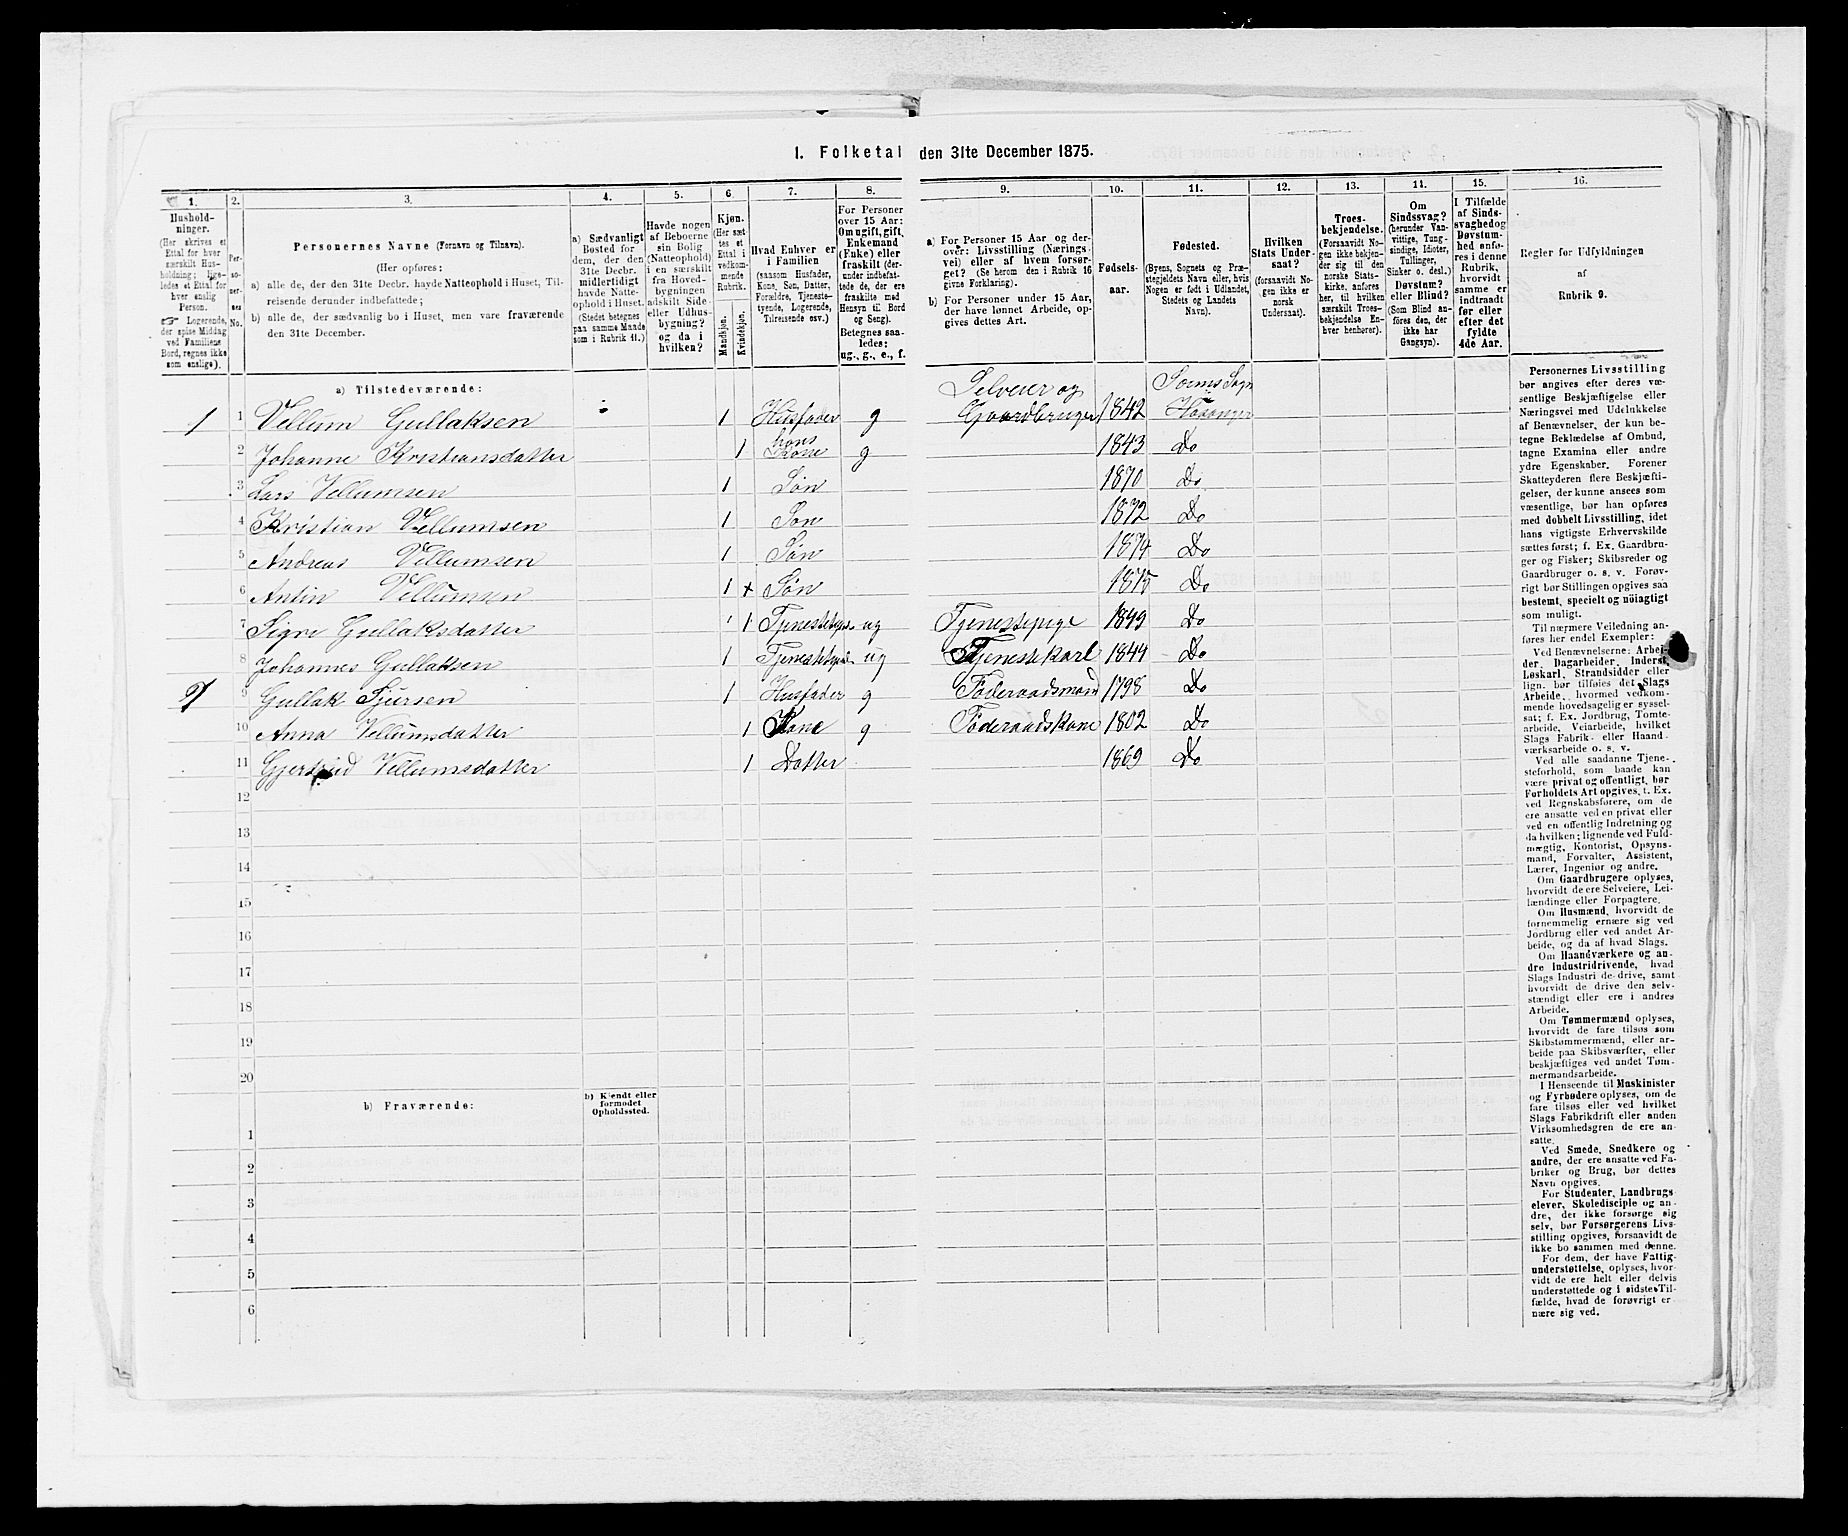 1. Folketal den 31te December 1875.
1. 2. 3. 4. 5. 6. 7. 8. 9. 10. 11. 12. 13. 14. 15. 16.
Husholdninger.
(Her skrives et
Ettal for hver
særskilt Husholdning;
ligeledes et Ettal for
hver enslig
Person.
☞ Logerende,
der spise Middag
ved Familiens
Bord, regnes ikke
som enslige).
Personernes No.
Personernes Navne (Fornavn og Tilnavn).
(Her opføres:
a) alle de, der den 31te Decbr. havde Natteophold i Huset, Tilreisende derunder indbefattede;
b) alle de, der sædvanlig bo i Huset, men vare fraværende
den 31te December.
a) Sædvanligt
Bosted for
dem, der den
31te Decbr.
midlertidigt
havde Natteophold i Huset.
(Stedet betegnes
paa samme Maade
som i Rubrik 11.)
Havde nogen
af Beboerne
sin Bolig
(Natteophold)
i en særskilt
fra Hovedbygningen
adskilt Side-
eller Udhusbygning?
og da i
hvilken?
Kjøn.
(Her sættes et
Ettal i
vedkommende
Rubrik.
Mandkjøn.
Kvindekjøn.
Hvad Enhver er
i Familien
(saasom Husfader,
Kone, Søn, Datter,
Forældre, Tjenestetyende, Logerende,
Tilreisende osv.)
For Personer
over 15 Aar:
Om ugift, gift,
Enkemand
(Enke) eller
fraskilt (derunder indbefattede de, der ere
fraskilte med
Hensyn til Bord
og Seng).
Betegnes saaledes:
ug., g., e., f.
a) For Personer 15 Aar og derover: Livsstilling (Næringsvei) eller af hvem forsørget? (Se herom den i Rubrik 16
givne Forklaring).
b) For Personer under 15 Aar,
der have lønnet Arbeide, opgives dettes Art.
Fødselsaar.
Fødested.
(Byens, Sognets og Præstegjeldets Navn eller, hvis
Nogen er født i Udlandet,
Stedets og Landets
Navn).
Hvilken
Stats Undersaat?
(forsaavidt Nogen ikke er
norsk
Undersaat).
Troesbekjendelse.
(Forsaavidt Nogen ikke bekjender sig til den
norske Statskirke, anføres
her, til hvilken
særskilt Troesbekjendelse Enhver henhører).
Om
Sindssvag?
(herunder Vanvittige, Tungsindige, Idioter,
Tullinger,
Sinker o. desl.)
Døvstum?
eller Blind?
(Som Blind anføres den, der
ikke har
Gangsyn).
I Tilfælde
af Sindssvaghed og
Døvstumhed anføres i denne
Rubrik,
hvorvidt
samme er
indtraadt
før eller
efter det
fyldte
4de Aar.
Regler for Udfyldningen
af
Rubrik 9.
a) Tilstedeværende:
1 1 Vellum Gullaksen 1 Husfader g Selveier og Gaardbruger 1842 Sørums Sogn Hosanger
2 Johanne Kristiansdatter 1 hans Kone g 1843 Do
3 Lars Vellumsen 1 Søn 1870 Do
4 Kristian Vellumsen 1 Søn 1872 Do
5 Andreas Vellumsen 1 Søn 1874 Do
6 Antin Vellumsen 1 x Søn 1875 Do
7 Signe Gullaksdatter 1 Tjenestetye. ug Tjenestepige 1849 Do
8 Johannes Gullaksen 1 Tjenestetye ug Tjenestekarl 1844 Do
9 Gullak Sjursen 1 Husfader g Føderaadsmand 1798 Do
10 Anna Vellumsdatter 1 Kone g Føderaadskone 1802 Do
11 Gjertrud Vellumsdatter 1 Datter 1869 Do
12
13
14
15
16
17
18
19
20
b) Fraværende:
b) Kjendt eller
formodet
Opholdssted.
1
2
3
4
5
6
Personernes Livsstilling
bør angives efter deres væsentlige Beskjæftigelse eller
Næringsvei med Udelukkelse
af Benævnelser, der kun betegne Beklædelse af Ombud,
tagne Examina eller andre
ydre Egenskaber. Forener
Skatteyderen flere Beskjæftigelser, der kunne ansees som
væsentlige, bør han opføres
med dobbelt Livsstilling, idet
hans vigtigste Erhvervskilde
sættes først; f. Ex. Gaardbruger og Fisker; Skibsreder og
Gaardbruger o. s. v. Forøvrigt bør Stillingen opgives saa
bestemt, specielt og nöiagtigt
som muligt.
Til nærmere Veiledning anføres her endel Exempler:
Ved Benævnelserne: Arbeider, Dagarbeider, Inderst,
Løskarl, Strandsidder eller
lign. bør tilføies det Slags
Arbeide, hvormed vedkommende hovedsagelig er sysselsat; f. Ex. Jordbrug, Tomtearbeide, Veiarbeide, hvilket
Slags Fabrik- eller Haandværksarbeide o. s. v.
Ved alle saadanne Tjenesteforhold, som baade kan
være privat og offentligt, bør
Forholdets Art opgives, t. Ex.
ved Regnskabsførere, om de
ere ansatte ved en privat eller
ved en offentlig Indretning og
da hvilken; lignende ved Fuldmægtig, Kontorist, Opsynsmand, Forvalter, Assistent,
Lærer, Ingeniør og andre.
Om Gaardbrugere oplyses,
hvorvidt de ere Selveiere, Leilændinge eller Forpagtere.
Om Husmænd, hvorvidt de
fornemmelig ernære sig ved
Jordbrug eller ved andet Arbeide, og da af hvad Slags.
Om Haandværkere og andre Industridrivende, hvad
Slags Industri de drive, samt
hvorvidt de drive den selvstændigt eller ere i andres
Arbeide.
Om Tømmermænd oplyses,
hvorvidt de fare tilsøs som
Skibstømmermænd, eller arbeide paa Skibsværfter, eller
beskjæftiges ved andet Tømmermandsarbeide.
I Henseende til Maskinister
og Fyrbødere oplyses, om de
fare tilsøs eller ved hvilket
Slags Fabrikdrift eller anden
Virksomhedsgren de ere ansatte.
Ved Smede, Snedkere og
andre, der ere ansatte ved Fabriker og Brug, bør dettes
Navn opgives.
For Studenter, Landbrugselever, Skoledisciple og andre, der ikke forsørge sig
selv, bør Forsørgerens Livsstilling opgives, forsaavidt de
ikke bo sammen med denne.
For dem, der have Fattigunderstøttelse, oplyses, hvorvidt de ere helt eller delvis
understøttede og i sidste Tilfælde, hvad de forøvrigt ernære sig ved.